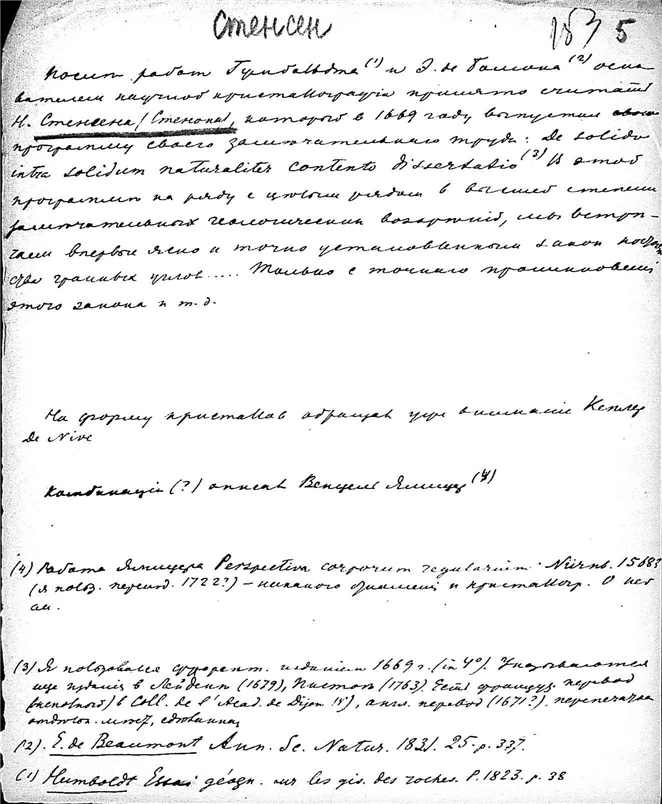 Стенсен
153 5
После работ Гумбольдта (1) и Э. де Бомона (2) осно-
вателем научной кристаллографии принято считать
Н. Стенсена (Стенона), который в 1669 году выпустил свою
программу своего замечательного труда: De solido
intra solidum naturaliter contento dissertatio (3) В этой
программе на ряду с целым рядом в высшей степени
замечательных геологических воззрений, мы встре-
чаем впервые ясно и точно установленным закон постоян
ства гранных углов .... Только с точного проникновения
этого закона и т.д.
На форму кристаллов обращал уже внимание Кеплер
De Nive
Комбинации (?) описал Венцель Ямицер (4)
(4) Работа Ямицера Perspectiva corporum regularium. Nürnb. 1568?
(я польз. 1722?) – никакого к кристаллогр. О нем
см.
(3) Я пользовался флорент. изданием 1669 г. (in 4°). Указываются
еще издания в Лейдене (1679), (1763). Есть француз. перевод
(неполный) в Coll. de l'Acad. de Dijon, англ. перевод (1671?),
(2). E. de Beaumont Ann. Sc. Natur. 1831. 25. p. 337.
(1) Humboldt Essai géogn. sur les gis. des roches. P. 1823. p. 38